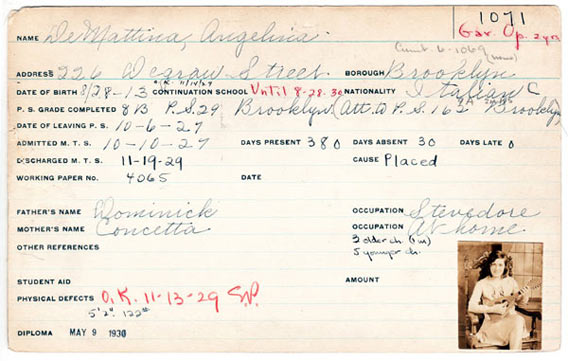 1071
Gar. Op. 2 yrs
6-1069
NAME De Mattina, Angelina.
ADDRESS 226 Degraw Street BOROUGH Brooklyn
DATE OF BIRTH 8/28-13 CONTINUATION SCHOOL Until 8-28-30 NATIONALITY Italian C
P. S. GRADE COMPLETED 8B P.S. 29 Brooklyn (Att. P.S. 162 Brooklyn)
DATE OF LEAVING P. S. 10-6-27
ADMITTED M. T. S. 10-10-27 DAYS PRESENT 380 DAYS ABSENT 30 DAYS LATE 0
DISCHARGED M. T. S. 11-19-29 CAUSE Placed
WORKING PAPER NO. 4065 DATE
FATHER'S NAME Dominick OCCUPATION Stevedore
MOTHER'S NAME Concetta OCCUPATION At home
OTHER REFERENCES 3 older ch.
5 younger ch.
STUDENT AID AMOUNT
PHYSICAL DEFECTS O.K. 11-13-29 S.P.
5'2" 122#
DIPLOMA MAY 9 1930